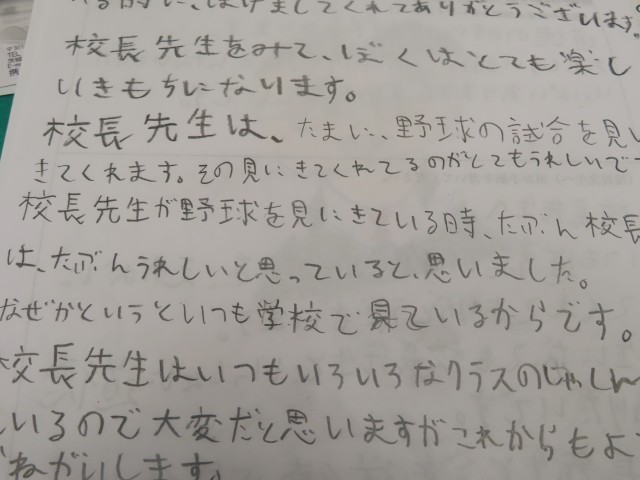 る時に、はげましてくれてありがとうございます。
校長先生をみて、ぼくはとても楽し
いきもちになります。
校長先生は、たまに、野球の試合を見に
きてくれます。その見にきてくれてるのがとてもうれしいで
校長先生が野球を見にきている時、たぶん校長
は、たぶんうれしいと思っていると、思いました。
なぜかというといつも学校で見ているからです。
校長先生はいつもいろいろなクラスのじゅしん
いるので大変だと思いますがこれからもよ
おねがいします。